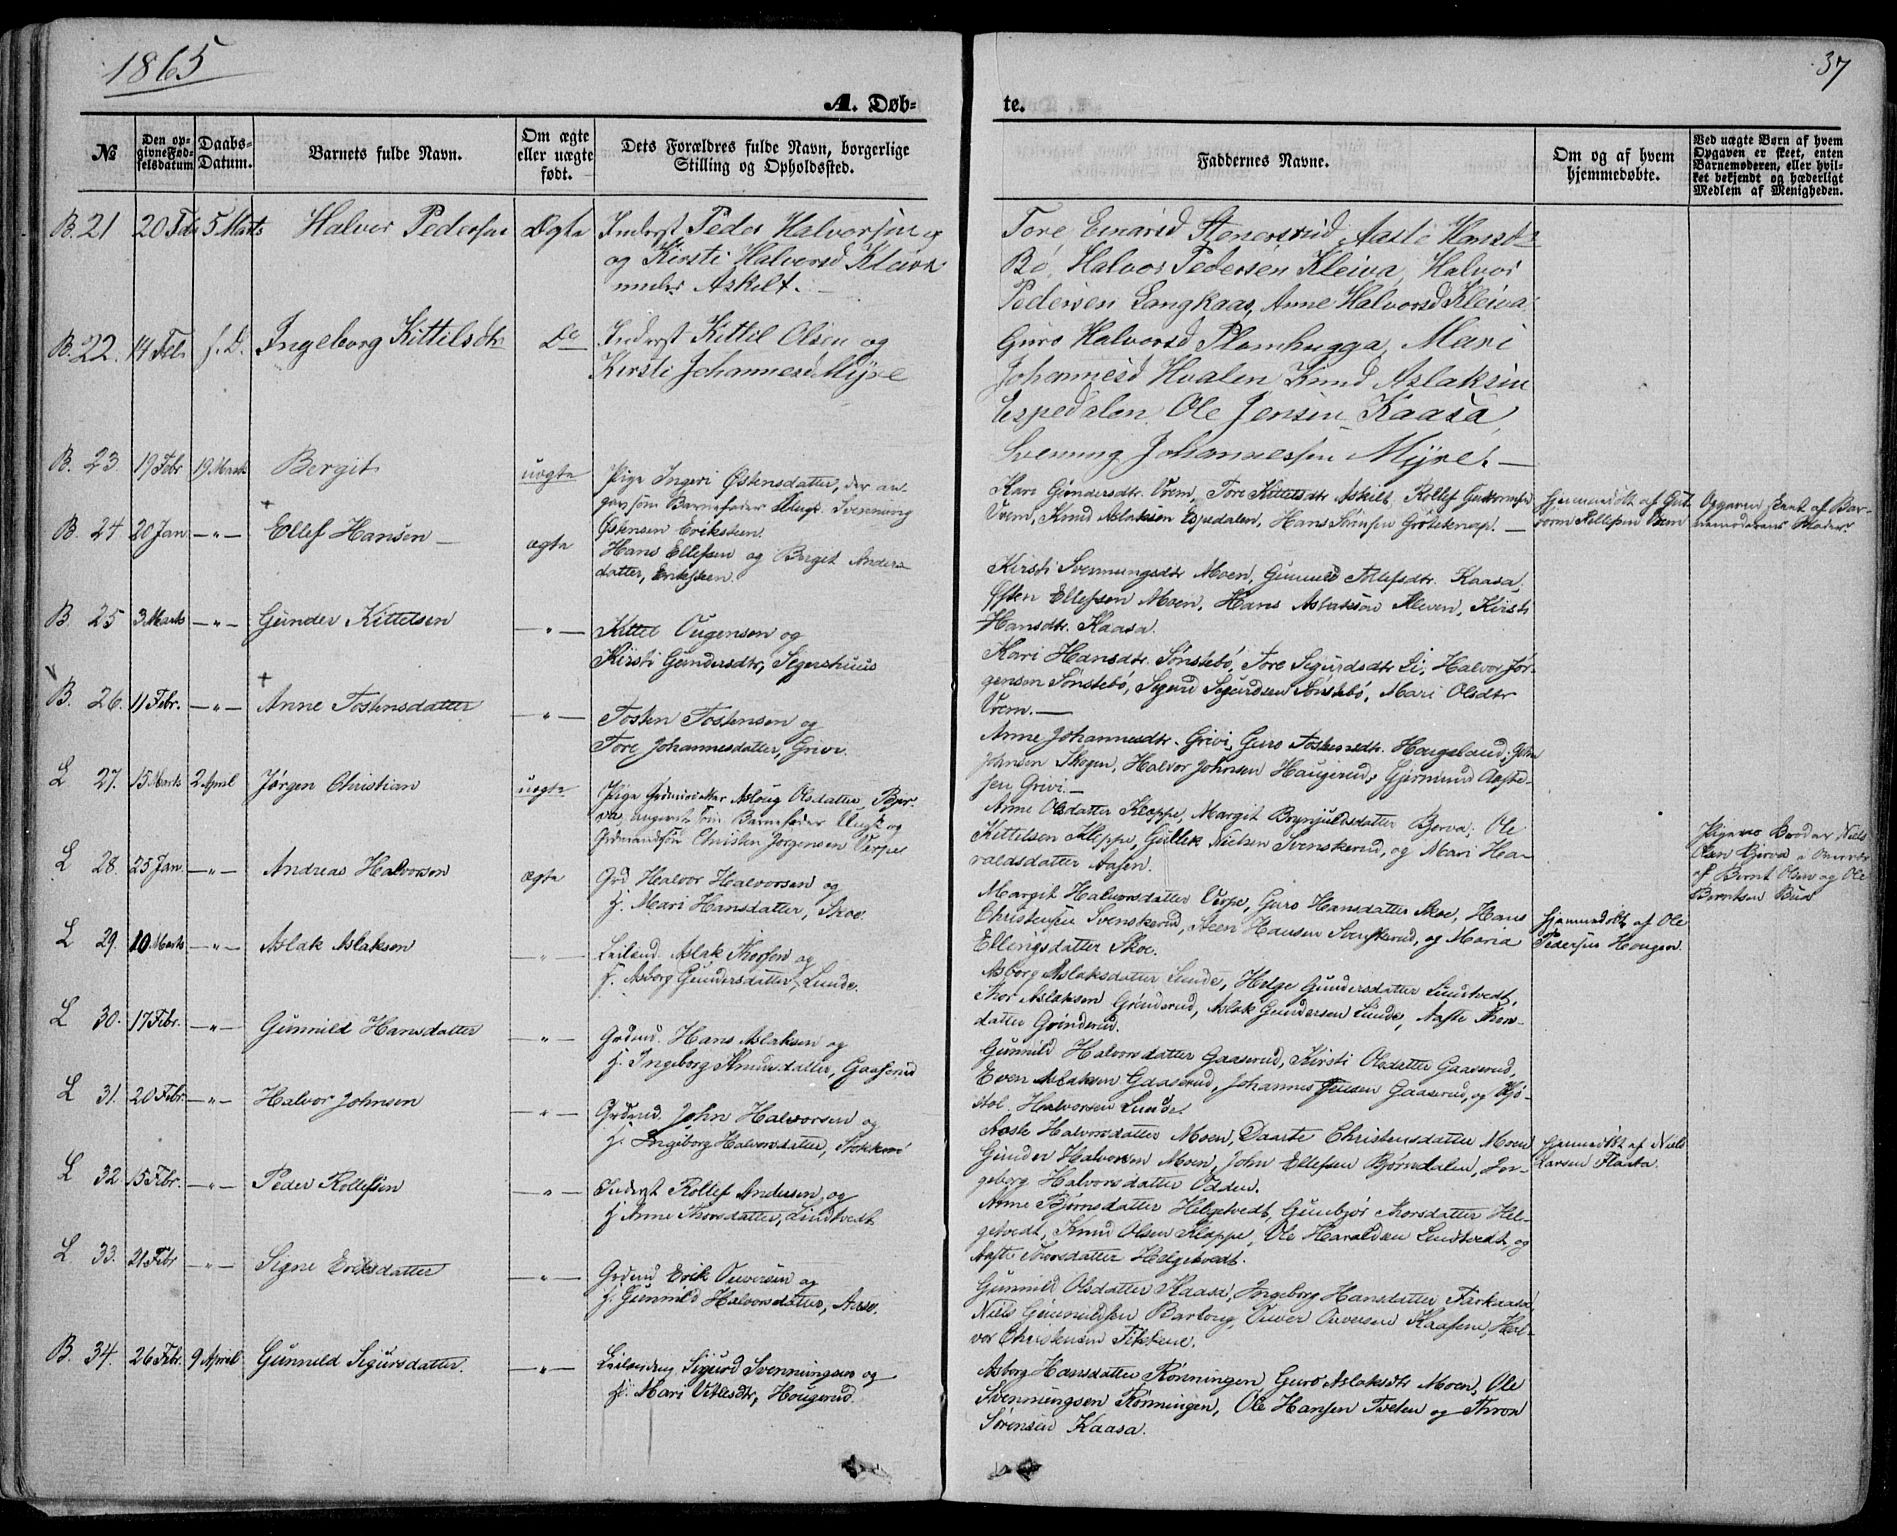 1865
37
A. Døb-
te.
№
Den op-
givne Fød-
selsdatum
Daabs-
Datum.
Barnets fulde Navn.
Om ægte
eller uægte
født.
Dets Forældres fulde Navn, borgerlige
Stilling og Opholdssted.
Faddernes Navne.
Om og af hvem
hjemmedøbte.
Ved uægte Børn af hvem
Opgaven er skeet, enten
Barnemoderen, eller hvil-
ket bekjendt og hæderligt
Medlem af Menigheden.
B. 21 20 Feb 5 Marts Halvor Pedersen Ægte Inderst Peder Halvorsen
og Kirsti Halvorsd Kleiva
under Askilt.
Tore Einarsd Stenersrud, Aaste Hansd
Bø, Halvor Pedersen Kleiva, Halvor
Pedersen Langkaas, Anne Halvorsd Kleiva
B. 22. 14 Feb s. D. Ingeborg Kittilsdtr Do Inderst Kittil Olsen og
Kirsti Johannesd Myre
Guro Halvorsd Plomhugga, Mari
Johannesd Hvalen Knud Aslaksen
Espedalen Ole Jensen Kaasa,
Svenung Johannessen Myre. —
B. 23. 19 Febr 19 Marts Bergit uægte Pige Ingeri Østensdatter, der an-
gav som Barnefader Ungk. Svenning
Østensen Eriksteen.
Kari Gundersdtr. Vrem, Tore Kittelsdtr Askilt, Rollef Guttormsen
Vrem, Knud Aslaksen Espedalen, Hans
Hjemmedøbt af Gut-
torm Rollefsen Vrem
Opgaven skeet af Bar-
nemoderens Fader
B. 24 20 Jan — „ — Ellef Hansen — ægte Hans Ellefsen og Berget Anders-
datter, Eriksteen.
Kirsti Svennungsdtr Moen, Gunnild Kaasa,
Østen Ellefsen Moen, Hans Aslaksen Kleven, Kirsti
Hansdtr. Kaasa.
B. 25 3 Marts — „ — Gunder Kittelsen — „ — Kittel Ougensen og
Kirsti Gundersdtr, Segershuus
Kari Hansdtr. Sønstebø, Tore Sigurdsdtr Li, Halvor Jør-
gensen Sønstebø, Sigurd Sigurdsen Sønstebø, Mari Olsdtr
Vrem. —
B. 26. 11 Febr. — „ — Anne Tostensdatter — „ — Tosten Tostensen og
Tore Johannesdatter, Grivi.
Anne Johannesdtr. Grivi, Guro Tostensdtr. Haugelund,
Jansen Skogen, Halvor Johnsen Haugerud, Gjermund
sen Grivi. —
L 27. 15 Marts 2 April Jørgen Christian uægte Pige Aslaug Olsdatter Bjer-
va, angivet som Barnefader Ungk og
Christen Jørgensen Verpe
Anne Olsdatter Kleppe, Margit Brynjuldsdatter Bjerva, Ole
Kittelsen Kleppe, Gullek Nielsen Svenskerud, og Mari Ha-
raldsdatter Aasen.
Pigens Broder Niels
Olsen Bjerva
af Bernt Olsen og Ole
Berntsen
L 28. 25 Jan. — „ — Andreas Halvorsen Ægte Grd Halvor Halvorsen og
H. Mari Hansdatter, Skoe.
Margit Halvorsdatter Verpe, Guro Hansdatter Skoe, Hans
Christensen Svenskerud, Steen Hansen Svenskerud, og Maria
Ellingsdatter Skoe.
L 29. 10 Marts — „ — Aslak Aslaksen — „ — Leilænd. Aslak Thorsen og
H. Asborg Gundersdatter, Lunde.
Asborg Aslaksdatter Lunde, Helge Gundersdatter Lindtvedt,
Thor Aslaksen Grinderud, Aslak Gundersen Lunde, Aaste Thors-
datter Grinderud.
Hjemmedøbt af Ole
Pedersen Hougen.
L 30. 17 Febr. — „ — Gunnild Hansdatter — „ — Grdmd. Hans Aslaksen og
H. Ingeborg Knudsdatter, Gaaserud
Gunnild Halvorsdatter Gaaserud, Kirsti Olsdatter Gaaserud,
Even Aslaksen Gaaserud, Johannes Jensen Gaaserud, og Kjø-
stol. Halvorsen Lunde.
L 31. 20 Febr. — „ — Halvor Johnsen — „ — Grdmd. John Halvorsen og
H. Ingeborg Halvorsdatter,
Aaste Halvorsdatter Moen, Daarte Christensdatter Moen
Gunder Halvorsen Moen, John Ellefsen Bjørndalen, In-
geborg Halvorsdatter Odden.
Hjemmedøbt af Niels
Larsen Flaata.
L 32 15 Febr. — „ — Peder Rollefsen — „ — Inderst Rollef Andersen, og
H. Anne Thorsdatter, Lindtvedt
Anne Bjørnsdatter Helgetvedt, Gunbjør Thorsdatter Hel-
getvedt, Knud Olsen Kleppe, Ole Haraldsen Lindtvedt, og
Aaste Thorsdatter Helgetvedt.
L. 33. 21 Febr — „ — Signe Eriksdatter — „ — Grdmd Erik Ouversen og
H. Gunnild Halvorsdatter,
Gunnild Olsdatter Kaasa, Ingeborg Hansdatter Farkaasa,
Niels Gunnuldsen Bartoug, Ouver Ouversen Kaasene, Hal-
vor Christensen
B. 34. 26 Febr. 9 April Gunnild Sigursdatter. — „ — Leilænding Sigurd Svenningsen og
H. Mari Hougerud.
Asborg Hansdatter Rønningen, Guro Aslaksdtr Moen, Ole
Svenningsen Rønningen, Ole Hansen Tveten og Thron
Sørensen Kaasa.